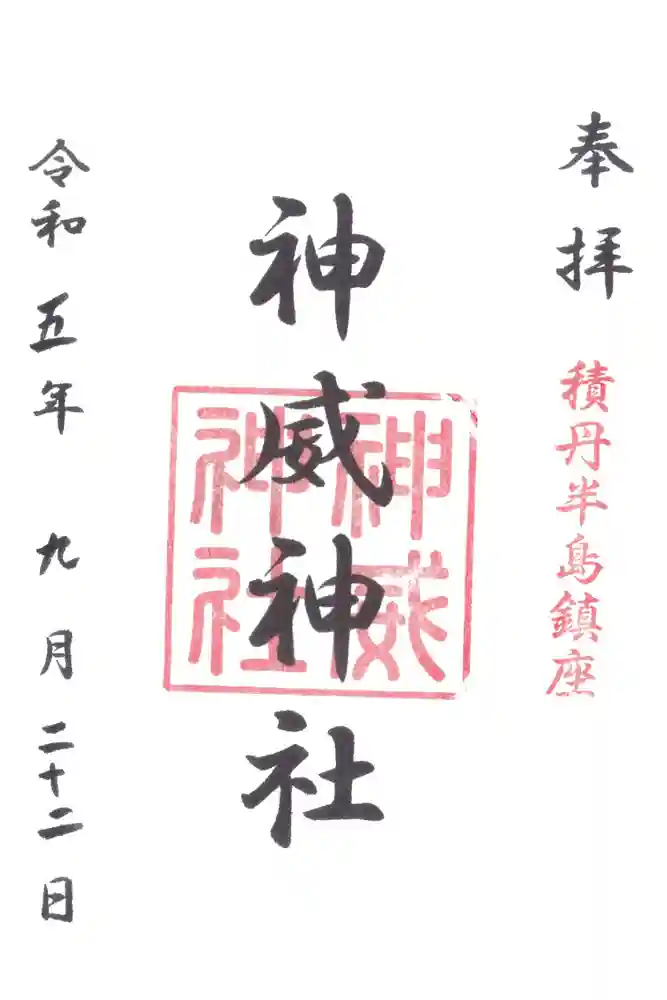 奉拝
積丹半島鎮座
神威神社
神威
神社
令和五年九月二十二日